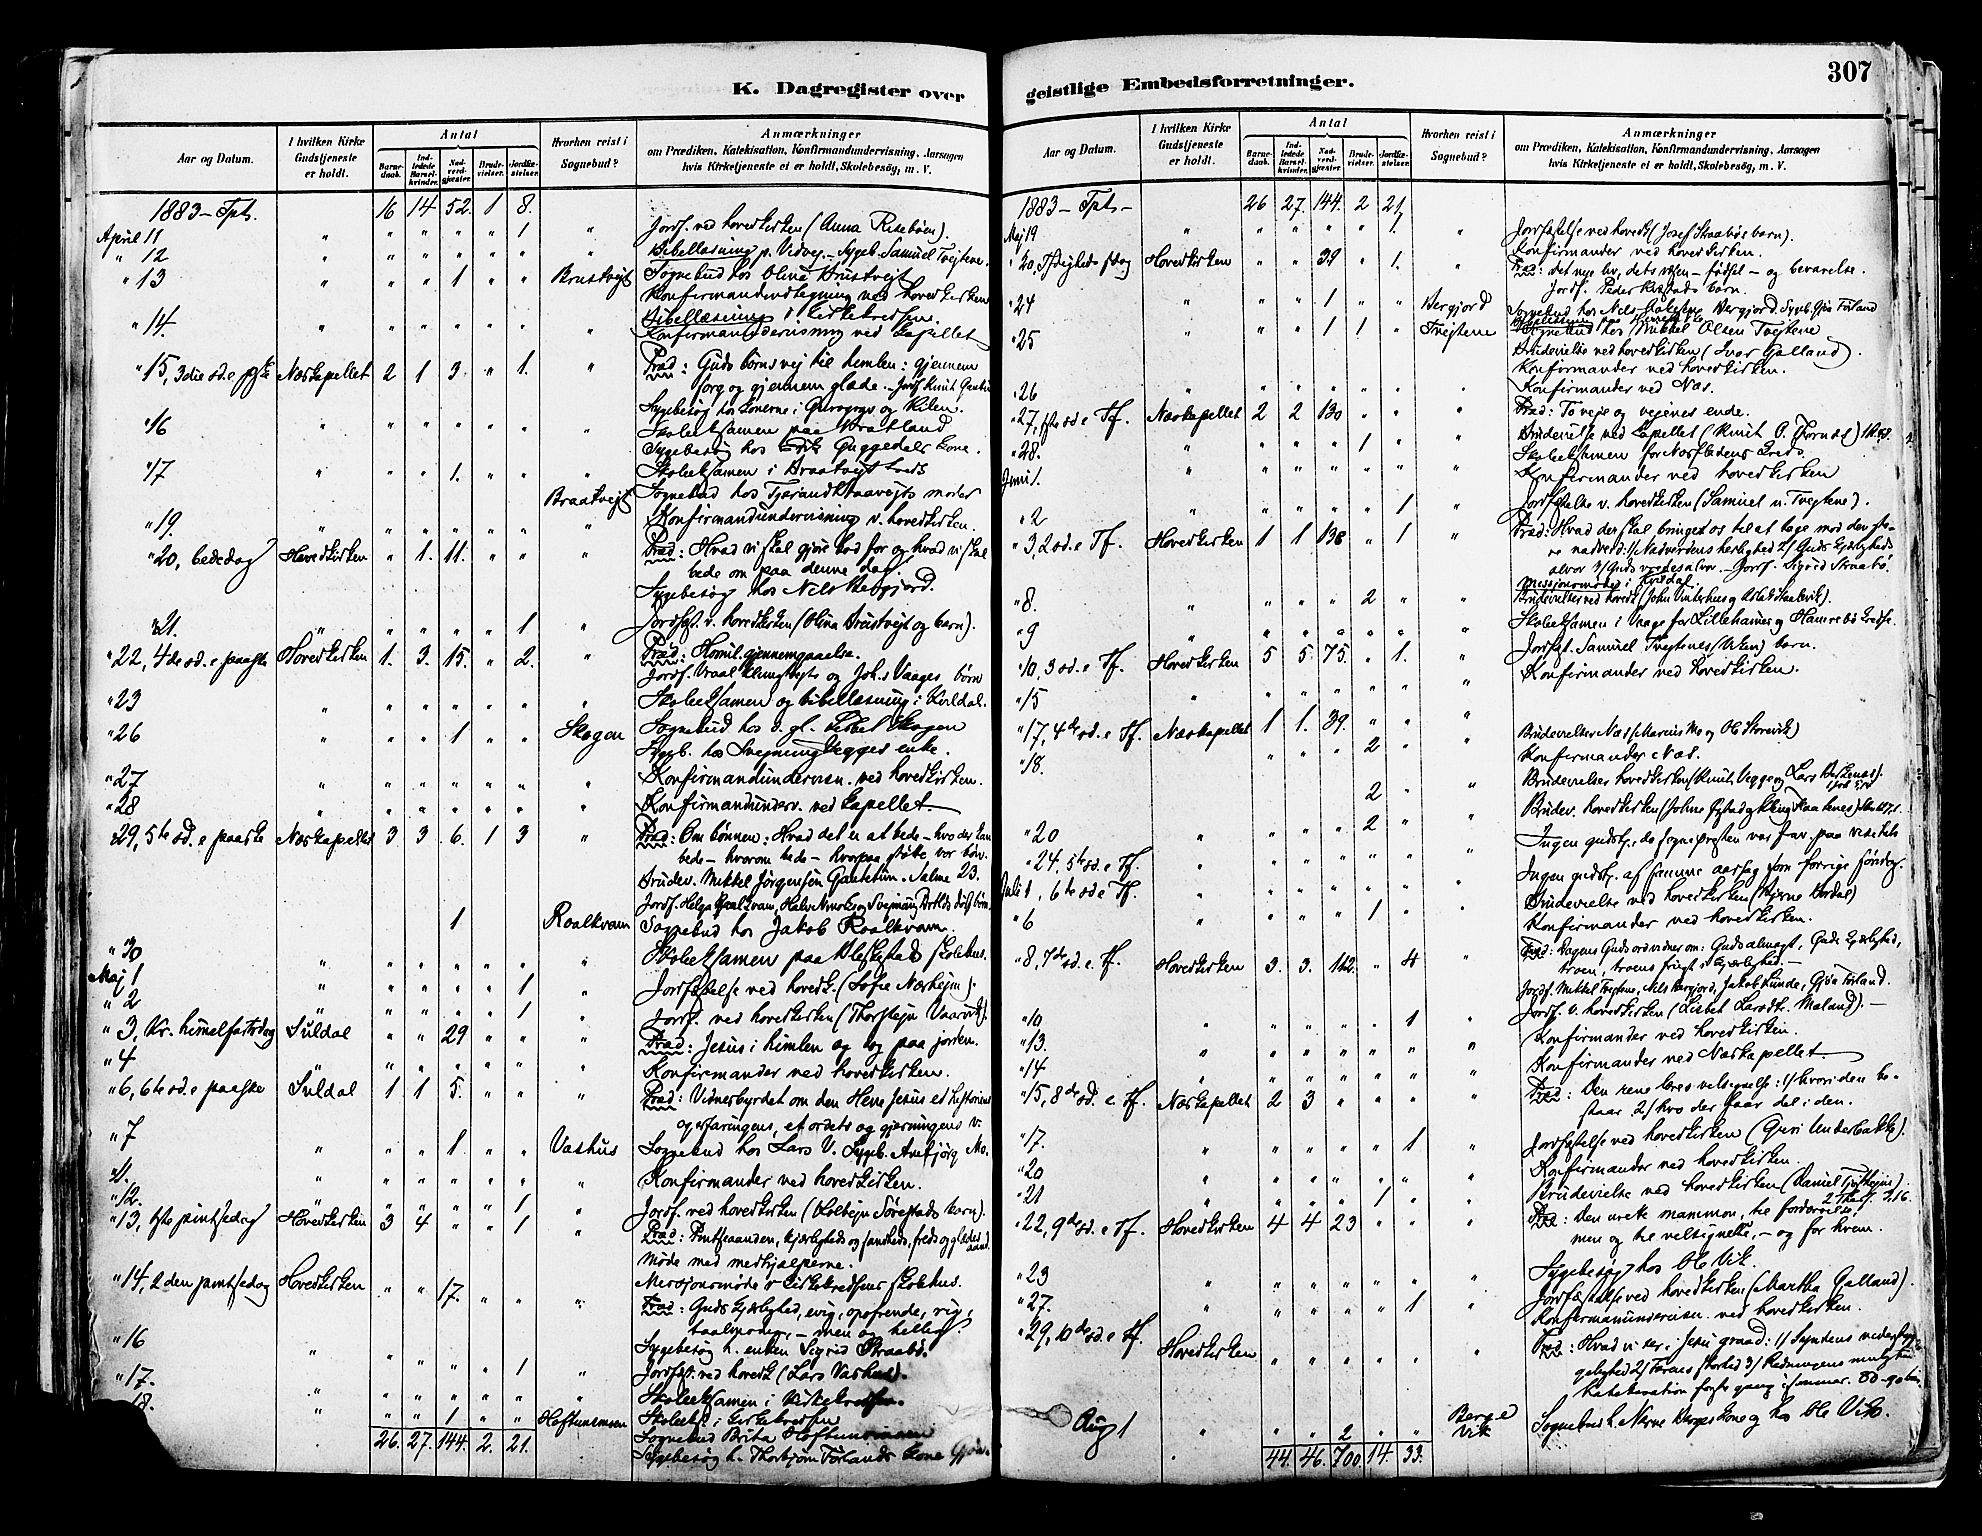 307
K. Dagregister over
Aar og Datum.
I hvilken Kirke Gudstjeneste er holdt.
Antal
Barnedaab.
Indledede Barselkvinder.
Nadverdgjæster.
Brudevielser.
Jordfæstelser.
Hvorhen reist i Sognebud?
Anmærkninger
om Prædiken, Katekisation, Konfirmandundervisning, Aarsagen
hvis Kirketjeneste ei er holdt, Skolebesøg, m. V.
1883 – Tpt. 16 14 52. 1 8.
April 11 " " " " " 1 " Jordf. ved hovedkirken (Anna Risebøen).
" 12 " " " " " " " Bibellæsning p. Vidvej. – Sygeb. Samuel Tvejtene.
" 13 " " " 1 " " Brustvejt Sognebud hos Olina Brustvejt
Konfirmandudlegning ved hovedkirken
" 14. " " " " " " " Bibellæsning i kirkekredsen.
Konfirmandundervisning ved kapellet
" 15, 3die sd. e. påske Næskapellet 2 1 3. " 1. " Præd: Guds børns vej til himlen: gjennem
sorg og gjennem glæde. – Jordf. Knut
Sygebesøg hos konerne i
" 16 " " " " " " " Skoleeksamen paa Bratland
Sygebesøg hos Erik Guggedals kone.
" 17 " " " 1. " " Skoleeksamen i Braatvejt kreds
Braatvejt Sognebud hos Tjerand Braavejts moder
" 19. " " " " " " " Konfirmandundervisning v. hovedkirken.
" 20, bededag Hovedkirken " 1. 11. " " " Præd: Hvad vi skal gjøre bod for og hvad vi skal
bede om paa denne dag.
Sygebesøg hos Nils Bergjord.
" 21. " " " " " 1 " Jordfst. v. hovedkirken (Olina Brustvejt og barn).
" 22, 4de sd. e. paaske Hovedkirken 1. 3. 15. " 2. " Præd: Homil. gjennemgaaelse.
Jordf. Vraal Klungtvejts og Joh.s Vaages børn
" 23 " " " " " " " Skoleeksamen og bibellæsning i Kvildal.
" 26 " " " 1 " " Skogen Sognebud hos d. gl. Lisbet Skogen
Sygeb. hos Svejnung Vegges enke.
" 27 " " " " " " " Konfirmandundervisn. ved hovedkirken.
" 28 " " " " " " " Konfirmandunderv. ved kapellet
" 29, 5te sd. e. paaske Næskapellet 3 3 6. 1 3 " Præd: Om bønnen: Hvad det er at bede – hvo der kan
bede – hvorom bede – hvorpaa støtte vor bøn.
Brudev. Mikkel Jørgensen Gautetun. Salme 23.
1 Roalkvam Sognebud hos Jakob Roalkvam.
" 30 " " " " " " " Skoleeksamen paa Bleskestad skolehus.
Maj 1 " " " " " 1 " Jordfæstelse ved hovedk. (Sofie Nærhejm).
" 2 " " " " " 1 " Jordf. ved hovedkirken (Thorstejn Vaarvik).
" 3, Kr. himelfartsdag Suldal " " 29 " " " Præd: Jesus i himlen og dog paa jorden.
" 4 " " " " " " " Konfirmander ved hovedkirken.
" 6, 6te sd. e. paaske Suldal 1 1 5. " " " Præd: Vidnesbyrdet om den Herre Jesus et historiens
og erfaringens, et ordets og gjerningens v.
" 7 " " " 1 " " Vashus Sognebud hos Lars V. Sygeb. Anbjørg Mo.
" 11. " " " " " " " Konfirmander ved hovedkirken.
" 12. " " " " " 1 " Jordf. ved hovedkirken (Kolbejn Sørestads barn).
" 13, 1ste pintsedag Hovedkirken 3 4 " " 1 " Præd: Pintseaanden, kjærligheds og sandheds, freds og glædes
aand.
Møde med medhjælperne.
" 14, 2den pintsedag Hovedkirken " " 17. " " " Missionsmøde i kirkekredsens skolehus.
Præd: Guds kjærlighed, evig, opofrende, rig,
taalmodig, – men og hellig.
" 16 " " " " " " Sygebesøg h. enken Sigrid Straabø.
" 17. " " " " " 1 Jordfst. ved hovedk. (Lars Vashus).
Skoleeksamen i kirkekredsen.
18. " " " 1 " " Hoftunsmoen Skoleeks. i kirkekredsen
Sognebud Brita Hoftunsmoen
26. 27. 144. 2. 21. Sygebesøg h. Thorbjørn Førlands kone Gjøa.
geistlige Embedsforretninger.
Aar og Datum.
I hvilken Kirke Gudstjeneste er holdt.
Antal
Barnedaab.
Indledede Barselkvinder.
Nadverdgjæster.
Brudevielser.
Jordfæstelser.
Hvorhen reist i Sognebud?
Anmærkninger
om Prædiken, Katekisation, Konfirmandundervisning, Aarsagen
hvis Kirketjeneste ei er holdt, Skolebesøg, m. V.
1883 – Tpt – 26 27. 144. 2 21
Maj 19 " " " " " 1. " Jordfæstelse ved hovedk. (Josef Straabøs barn).
Konfirmander ved hovedkirken.
" 20, Trefoldigheds sdag Hovedkirken " " 39 " 1. " Præd: det nye liv, dets væsen – fødsel – og bevarelse.
Jordf. Peder barn.
" 24 " " " 1 " " Bergjord Sognebud hos Nils Bergjord. Sygeb. Gjøa Førland
" 25 " " " 1 1 " Tvejtene Sognebud hos Mikkel Olsen Tvejtene
Brudevielse ved hovedkirken (Ivar Galland).
Konfirmander ved hovedkirken.
" 26 " " " " " " " Konfirmander ved Næs.
" 27, 1ste sd. e. Tf. Næskapellet 2 2 130 " " " Præd: To veje og vejenes ende.
" 28. " " " " 1 " " Brudevielse ved kapellet (Knut O.
Skoleeksamen for Næsflædens kreds.
Juni 1. " " " " " " " Konfirmander ved hovedkirken
" 2 " " " " " 1 " Jordfæstelse v. hovedkirken (Samuel n. Tvejtene).
" 3, 2 sd. e. Tf. Hovedkirken 1 1 138 " 1 " Præd: Hvad der skal bringe os til at tage mod den store
nadverd: 1/ Nadverdens herlighed 2/ Guds kjærligheds
alvor 3/ Guds vredes alvor. – Jordf. Sigrid Straabø.
Missionsmøde i Kvildal.
" 8. " " " " 2 " " Brudevielser ved hovedk.
" 9 " " " " " " " Skoleeksamen i Vaage for Lillehamer og Hamrebø kredse.
" 10, 3 sd. e. Tf. Hovedkirken 5 5 75. " 1. " Jordfst. Samuel Tvejtenes (Viken) barn.
" 15 " " " " " " " Konfirmander ved hovedkirken.
" 17, 4de sd. e. Tf. Næskapellet 1 1. 39. " " "
" 18. " " " " 2 " " Brudevielser Næs (Marcius Mo og Ole Storevik)
Konfirmander Næs.
2 " " Brudevielser hovedkirken (Knut Vegge og Lars
" 20 " " " " 2 " " Brudev. hovedkirken (Johne
" 24. 5te sd. e. Tf. " " " " " " " Ingen gudstj., da sognepresten var frav. paa
Juli 1, 6te sd. e. Tf. " " " " " " " Ingen gudstj. af samme aarsag som forrige søndag.
" 6 " " " " 1 " " Brudevielse ved hovedkirken
Konfirmander ved hovedkirken.
" 8, 7de sd. e. Tf. Hovedkirken 3. 3. 142. " 4 " Præd: Dagens Guds ord vidner om: Guds almagt, Guds kjærlighed,
troen, troens frugt i kjærlighed. –
Jordf. Mikkel Tvejtene, Nils Bergjord, Jakob Kunde, Gjøa Førland.
" 10 " " " " " 1 " Jordf. v. hovedkirken (Lisbet Larsdtr. Moland). –
" 13. " " " " " " " Konfirmander ved hovedkirken.
" 14 " " " " " " " Konfirmander ved Næskapellet
" 15, 8de sd. e. Tf. Næskapellet 2 3 " " " " Præd: Den rene læres velsignelse: 1/ hvori den bestaar
2/ hvo der faar del i den.
" 17. " " " " " 1 " Jordfæstelse ved hovedkirken (Guri Underbakke).
" 20 " " " " " " " Konfirmander ved hovedkirken.
" 21 " " " " 1 " " Brudevielse ved hovedkirken (Daniel
" 22, 9de sd. e. Tf. Hovedkirken 4 4 23 " " " Præd: Den urette mammon, til fordervelse,
men og til velsignelse, – og for hvem.
" 23 " " " " " " " Sygebesøg hos Ole Vik.
" 27. " " " " " 1 " Jordfæstelse ved hovedkirken (Martha Galland).
Konfirmandundervisn. ved hovedkirken.
" 29, 10de sd. e. Tf. Hovedkirken " " " " " " Præd: Hvad vi ser i Jesu graad: 1/ Syndens
2/ Farens storhed 3/ Redningens mulighed
Katekisation første gang i sommer. 80–90 børn.
Aug 1 " " " 2 " " Berge Vik Sognebud h. Nærne Berges kone og hos Ole Vik.
44. 46. 700. 14. 33.